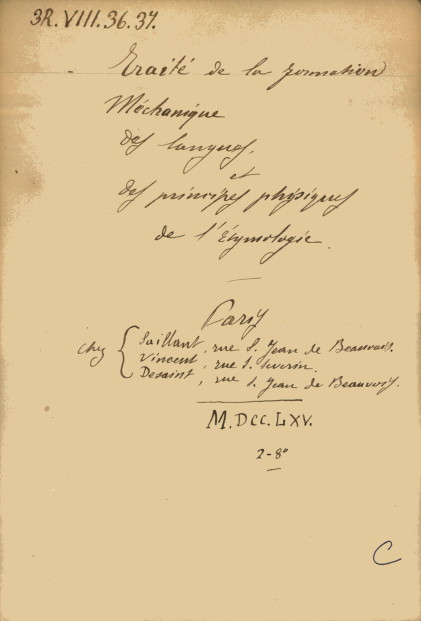 3R.VIII.36.37.
Traité de la formation
Méchanique
des langues,
et
des principes physiques
de l'Étymologie.
Paris
chez { Saillant, rue S. Jean de Beauvais.
Vincent, rue S. Severin.
Desaint, rue S. Jean de Beauvais.
M.DCC.LXV.
2-8°
C